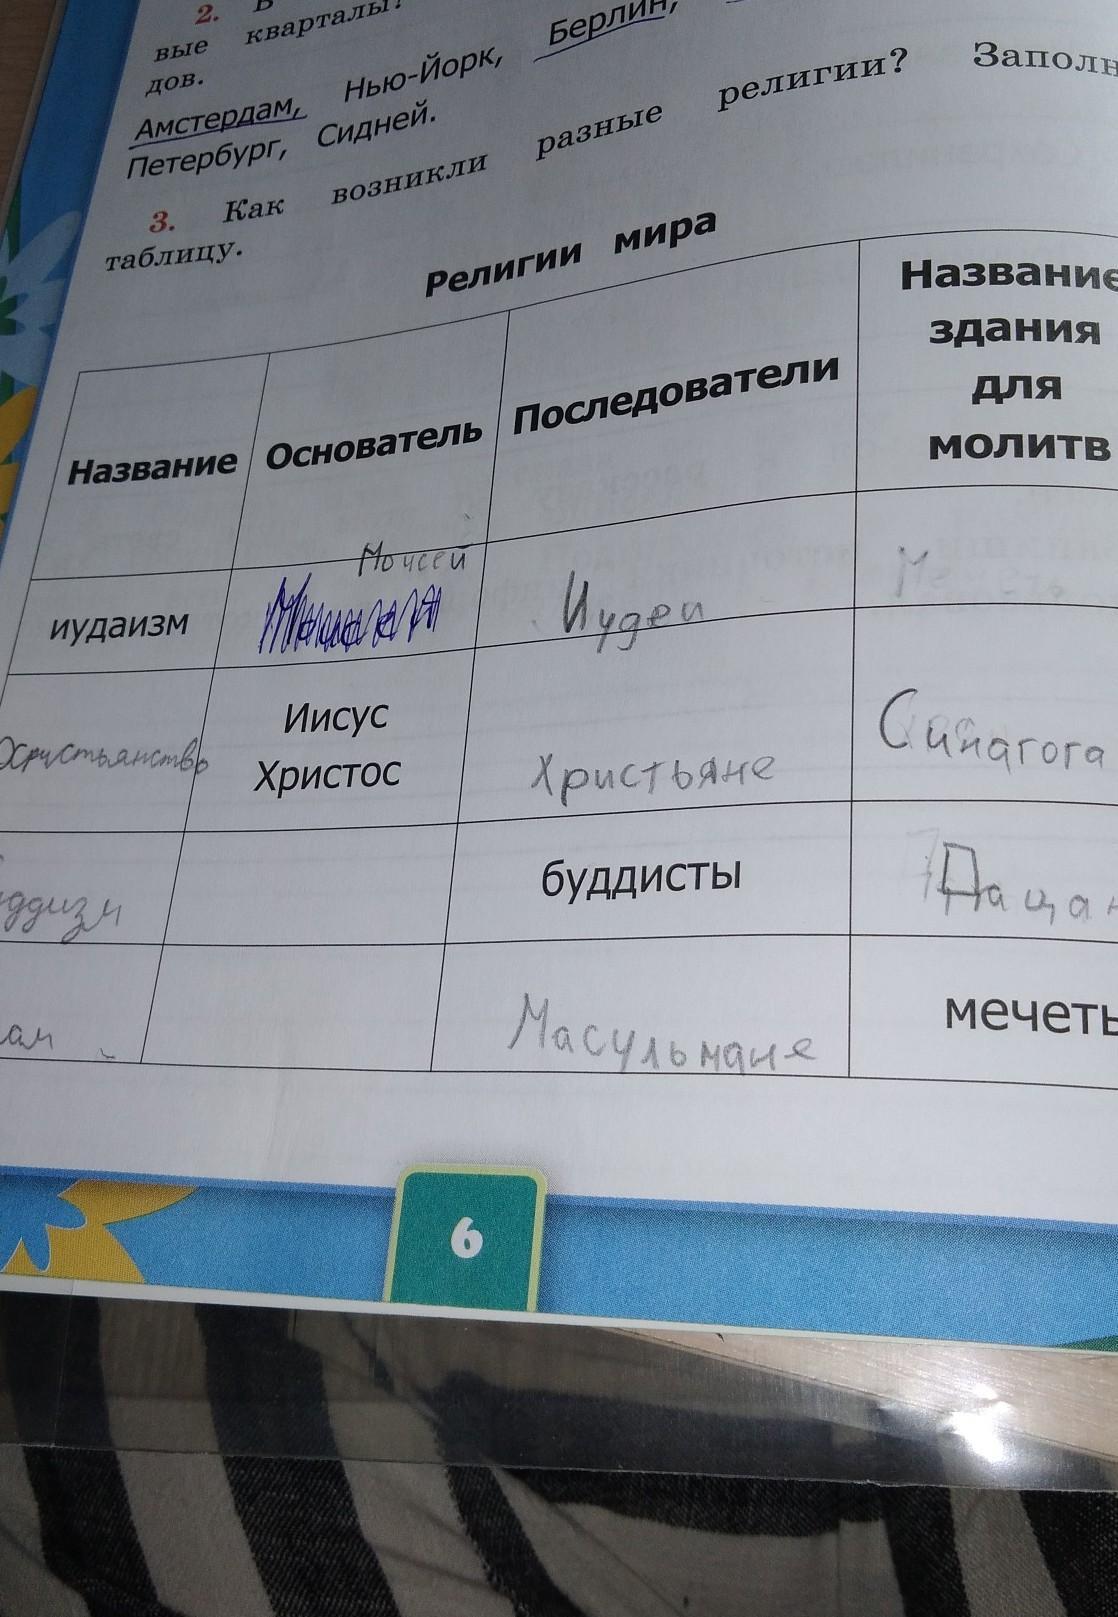 2. В
вые кварталы?
дов.
Амстердам, Нью-Йорк, Берлин,
Петербург, Сидней.
3. Как возникли разные религии? Заполн
таблицу.
Религии мира
Название Основатель Последователи Название
здания
для
молитв
иудаизм Моисей Иудеи Мечеть
Христьянство Иисус
Христос Христьяне Синагога
ддизм буддисты Дацан
ам Масульмане мечеть
6